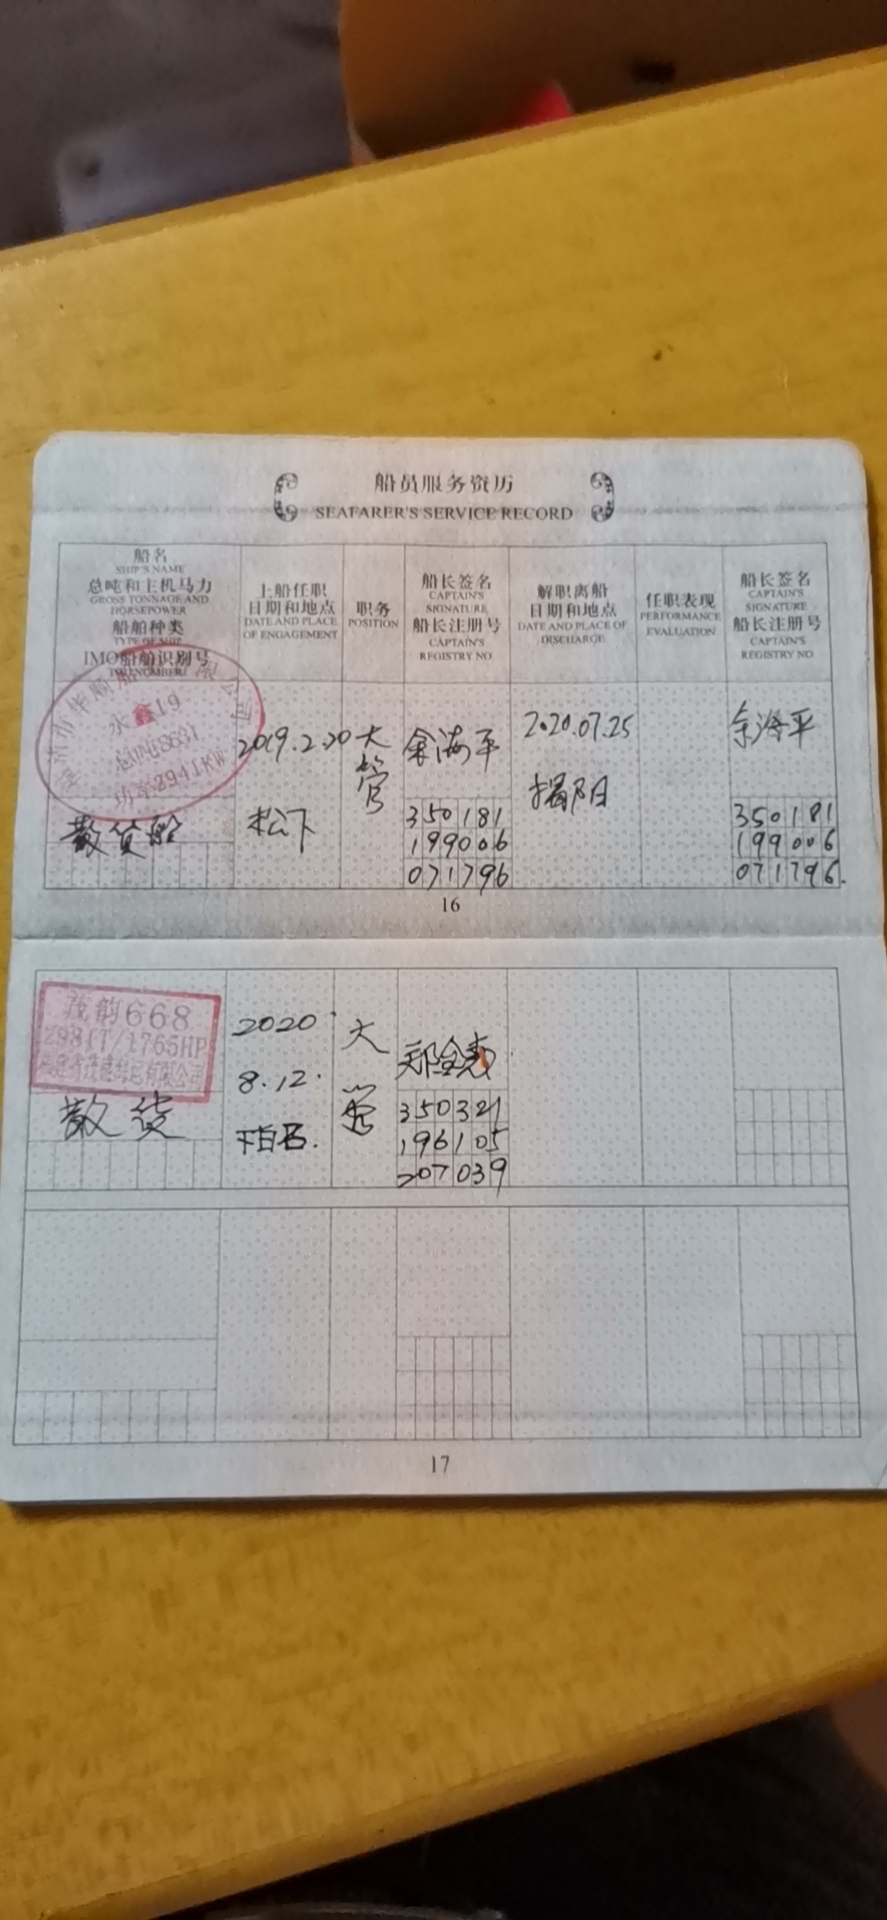 船员服务资历
SEAFARER'S SERVICE RECORD
船名
SHIP'S NAME
总吨和主机马力
GROSS TONNAGE AND
HORSEPOWER
船舶种类
TYPE OF SHIP
IMO船舶识别号
IMO NUMBER
上船任职
日期和地点
DATE AND PLACE
OF ENGAGEMENT
职务
POSITION
船长签名
CAPTAIN'S
SIGNATURE
船长注册号
CAPTAIN'S
REGISTRY NO
解职离船
日期和地点
DATE AND PLACE OF
DISCHARGE
任职表现
PERFORMANCE
EVALUATION
船长签名
CAPTAIN'S
SIGNATURE
船长注册号
CAPTAIN'S
REGISTRY NO
永鑫19
功率2941KW
散货船
2019.2.20
松下
大管
余海平
350181
199006
071796
2020.07.25
揭阳
余海平
350181
199006
071796.
16
茂韵668
2981T/1765HP
散货
2020.
8.12.
下白石.
大管
350321
196105
207039
17